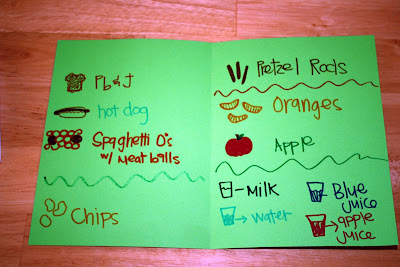 Pb & J
hot dog
Spaghetti O's
w/ Meat balls
Chips
Pretzel Rods
Oranges
Apple
Milk
water
Blue
juice
apple
juice